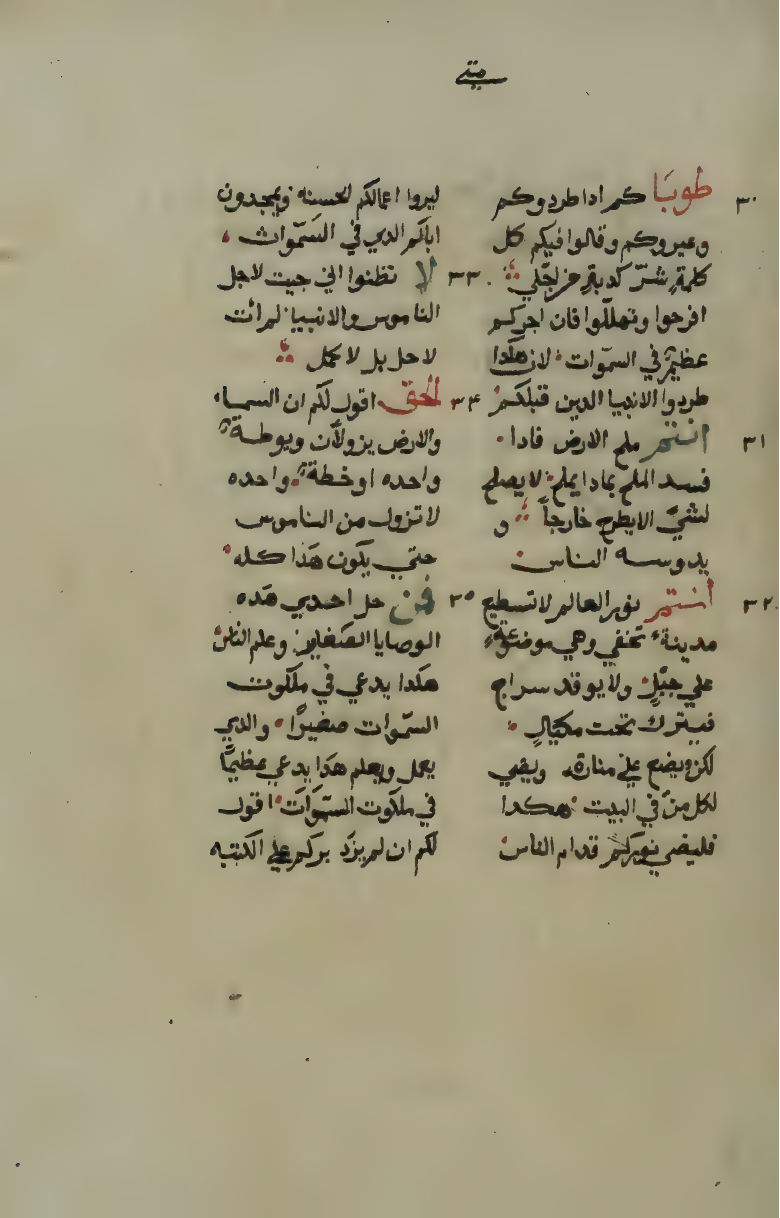 متي
٣٠ طوبَا كم ادا طردوكم
وعيروكم وقالوا فيكم كل
كلمةٍ شرّ كدبةٍ من اجلي
افرحوا وتهللّوا فان اجركم
عظيمٌ في السموات لان هكدا
طردوا الانبيا الدين قبلكم
٣١ انتم ملح الارض فادا
فسد الملح بمادا يملح لا يصلح
لشيّ الا يطرح خارجاً و
يدوسه الناس
٣٢ انتم نور العالم لا تسطيع
مدينة تخفي وهي موضوعة
علي جبلٍ ولا يوقد سراج
فيترك تحت مكيالٍ
لكن يضع علي منارة ويضي
لكل من في البيت هكدا
فليضي نوركم قدام الناس
ليروا اعمالكم الحسنه ويمجدون
اباكم الدي في السّموات
٣٣ لا تظنوا اني جيت لاحل
الناموس والانبيا لم ائت
لاحل بل لاكمل
٣٤ الحق اقول لكم ان السما
والارض يزولان ويوطة
واحده او خطة واحده
لا تزول من الناموس
حتي يكون هَدا كله
٣٥ فمن حل احدي هَده
الوصايا الصغاير وعلم الناس
هكدا يدعي في ملكوت
السّموات صغيرًا والدي
يعمل ويعلم هدا يدعي عظيمًا
في ملكوت السّموَات اقول
لكم ان لم يزد بركم علي الكتبه